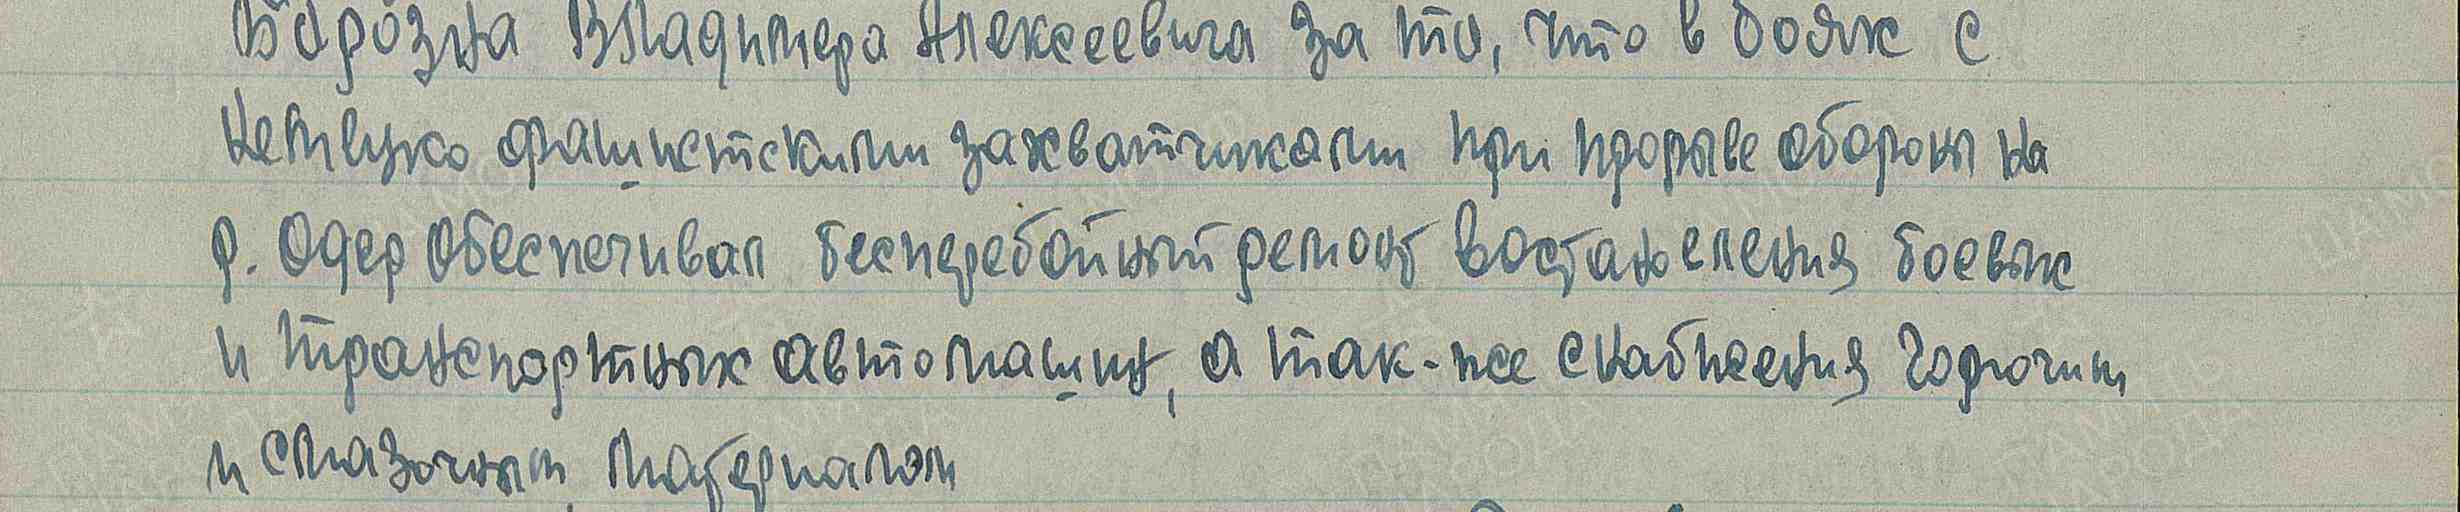 Барозна Владимера Алексеевича за то, что в боях с
немецко фашистскими захватчиками при прорыве обороны на
р. Одер обеспечивал бесперебойный ремонт востановления боевых
и транспортных автомашин, а так-же снабжения горючим
и смазочным материалом